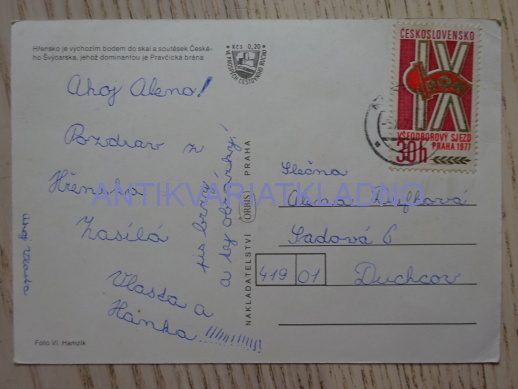 Hřensko je výchozím bodem do skal a soutěsek Česká-
ho Švýcarska, jehož dominantou je Pravčická brána.
KčS 0,20
VE PROSPĚCH CESTOVNÍHO RUCHU
Ahoj Aleno!
Pozdrav z
Hřenska
zasílá
Vlasta a
Hanka !!!!!!!!!!
piš brzy
a dej obrázky!
Foto Vl. Hamplík
NAKLADATELSTVÍ ORBIS PRAHA
ČESKOSLOVENSKO
IX
ROH
VŠEODBOROVÝ SJEZD
PRAHA 1977
30h
Slečna
Alena
Sadová 6
419 01 Duchcov
ANTIKVARIATKLADNO